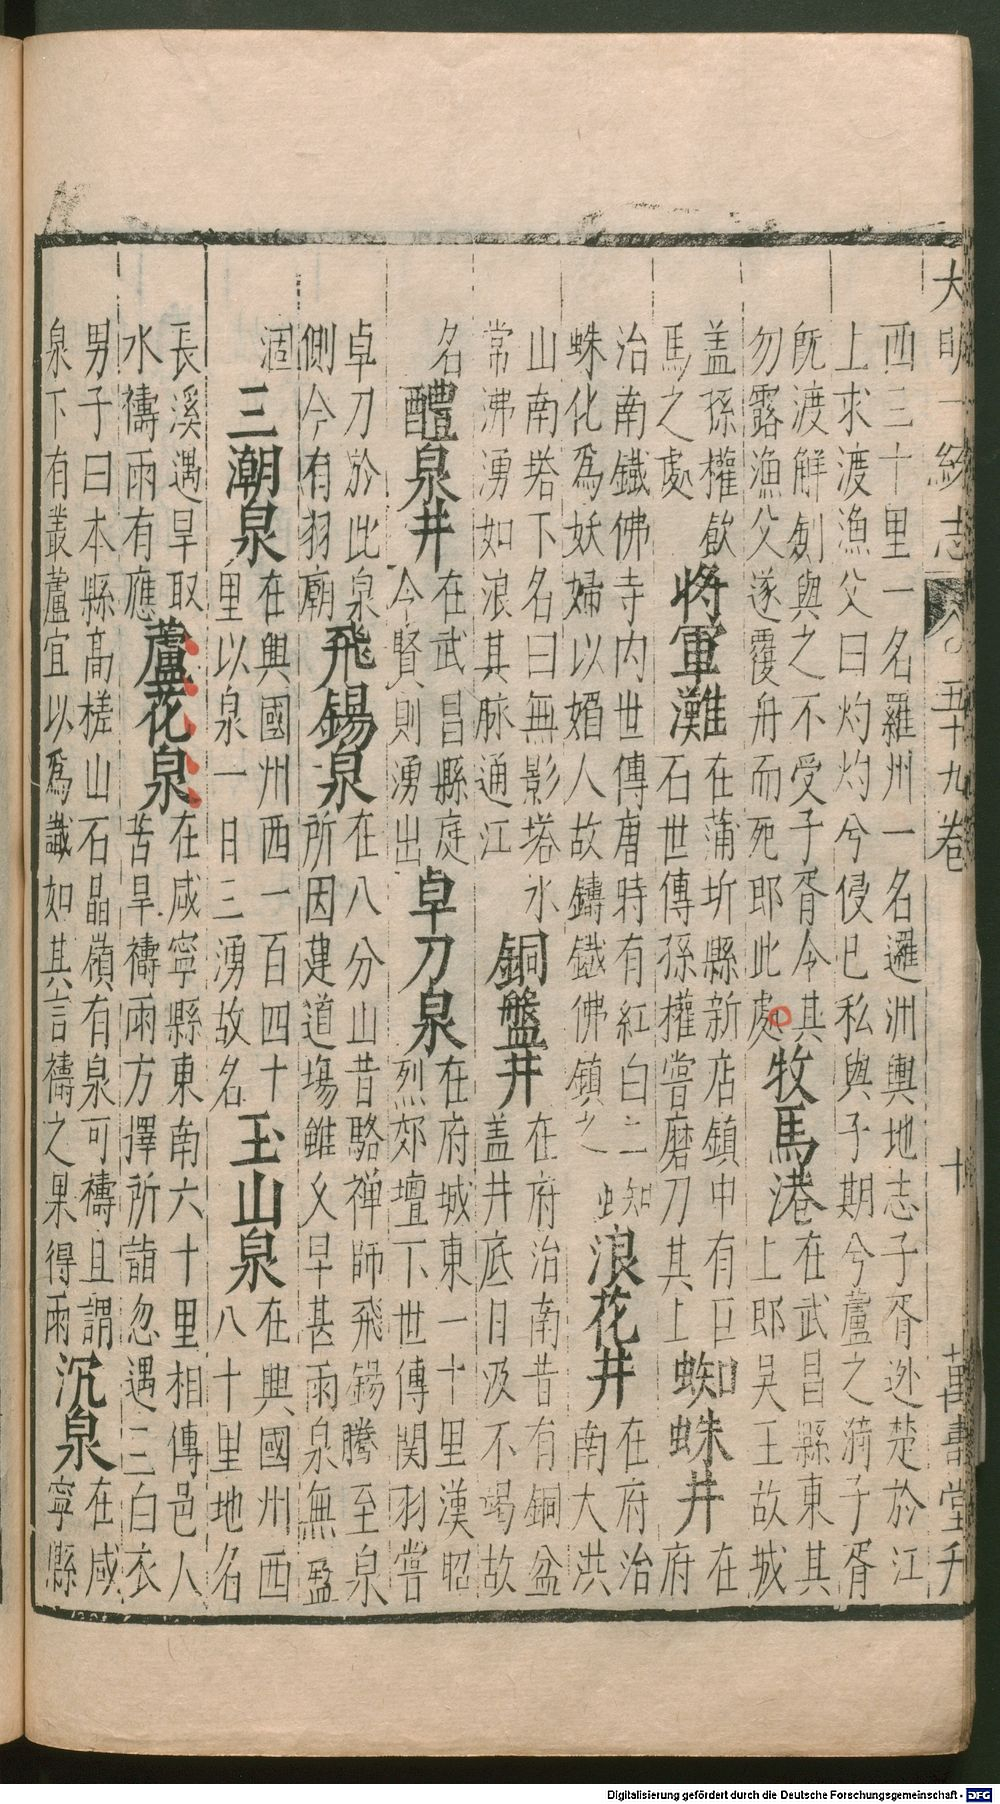 大明一統志 五十九卷 十 萬壽堂刋
西三十里一名羅州一名邏洲輿地志子胥迯楚於江
上求渡漁父曰灼灼兮侵已私與子期兮蘆之漪子胥
旣渡解劍與之不受子胥令其
勿露漁父遂覆舟而死郎此處
牧馬港
在武昌縣東其
上郎吳王故城
盖孫權飲
馬之處
將軍灘
在蒲圻縣新店鎮中有巨
石世傳孫權嘗磨刀其上
蜘蛛井
在
府
治南鐵佛寺内世傳唐時有紅白二蜘
蛛化爲妖婦以婚人故鑄鐵佛鎮之
浪花井
在府治
南大洪
山南塔下名曰無影塔水
常沸湧如浪其脉通江
銅盤井
在府治南昔有銅盆
盖井底日汲不竭故
名
醴泉井
在武昌縣庭
今賢則湧出
卓刀泉
在府城東一十里漢昭
烈郊壇下世傳関羽嘗
卓刀於此泉
側今有羽廟
飛錫泉
在八分山昔駱禅師飛錫騰至泉
所因建道塲雖久旱甚雨泉無盈
涸
三潮泉
在興國州西一百四十
里以泉一日三湧故名
玉山泉
在興國州西
八十里地名
長溪遇旱取
水禱雨有應
蘆花泉
在咸寧縣東南六十里相傳邑人
苦旱禱雨方擇所詣忽遇三白衣
男子曰本縣高槎山石晶嶺有泉可禱且謂
泉下有叢蘆宜以爲識如其言禱之果得雨
沉泉
在咸
寧縣
Digitalisierung gefördert durch die Deutsche Forschungsgemeinschaft - DFG